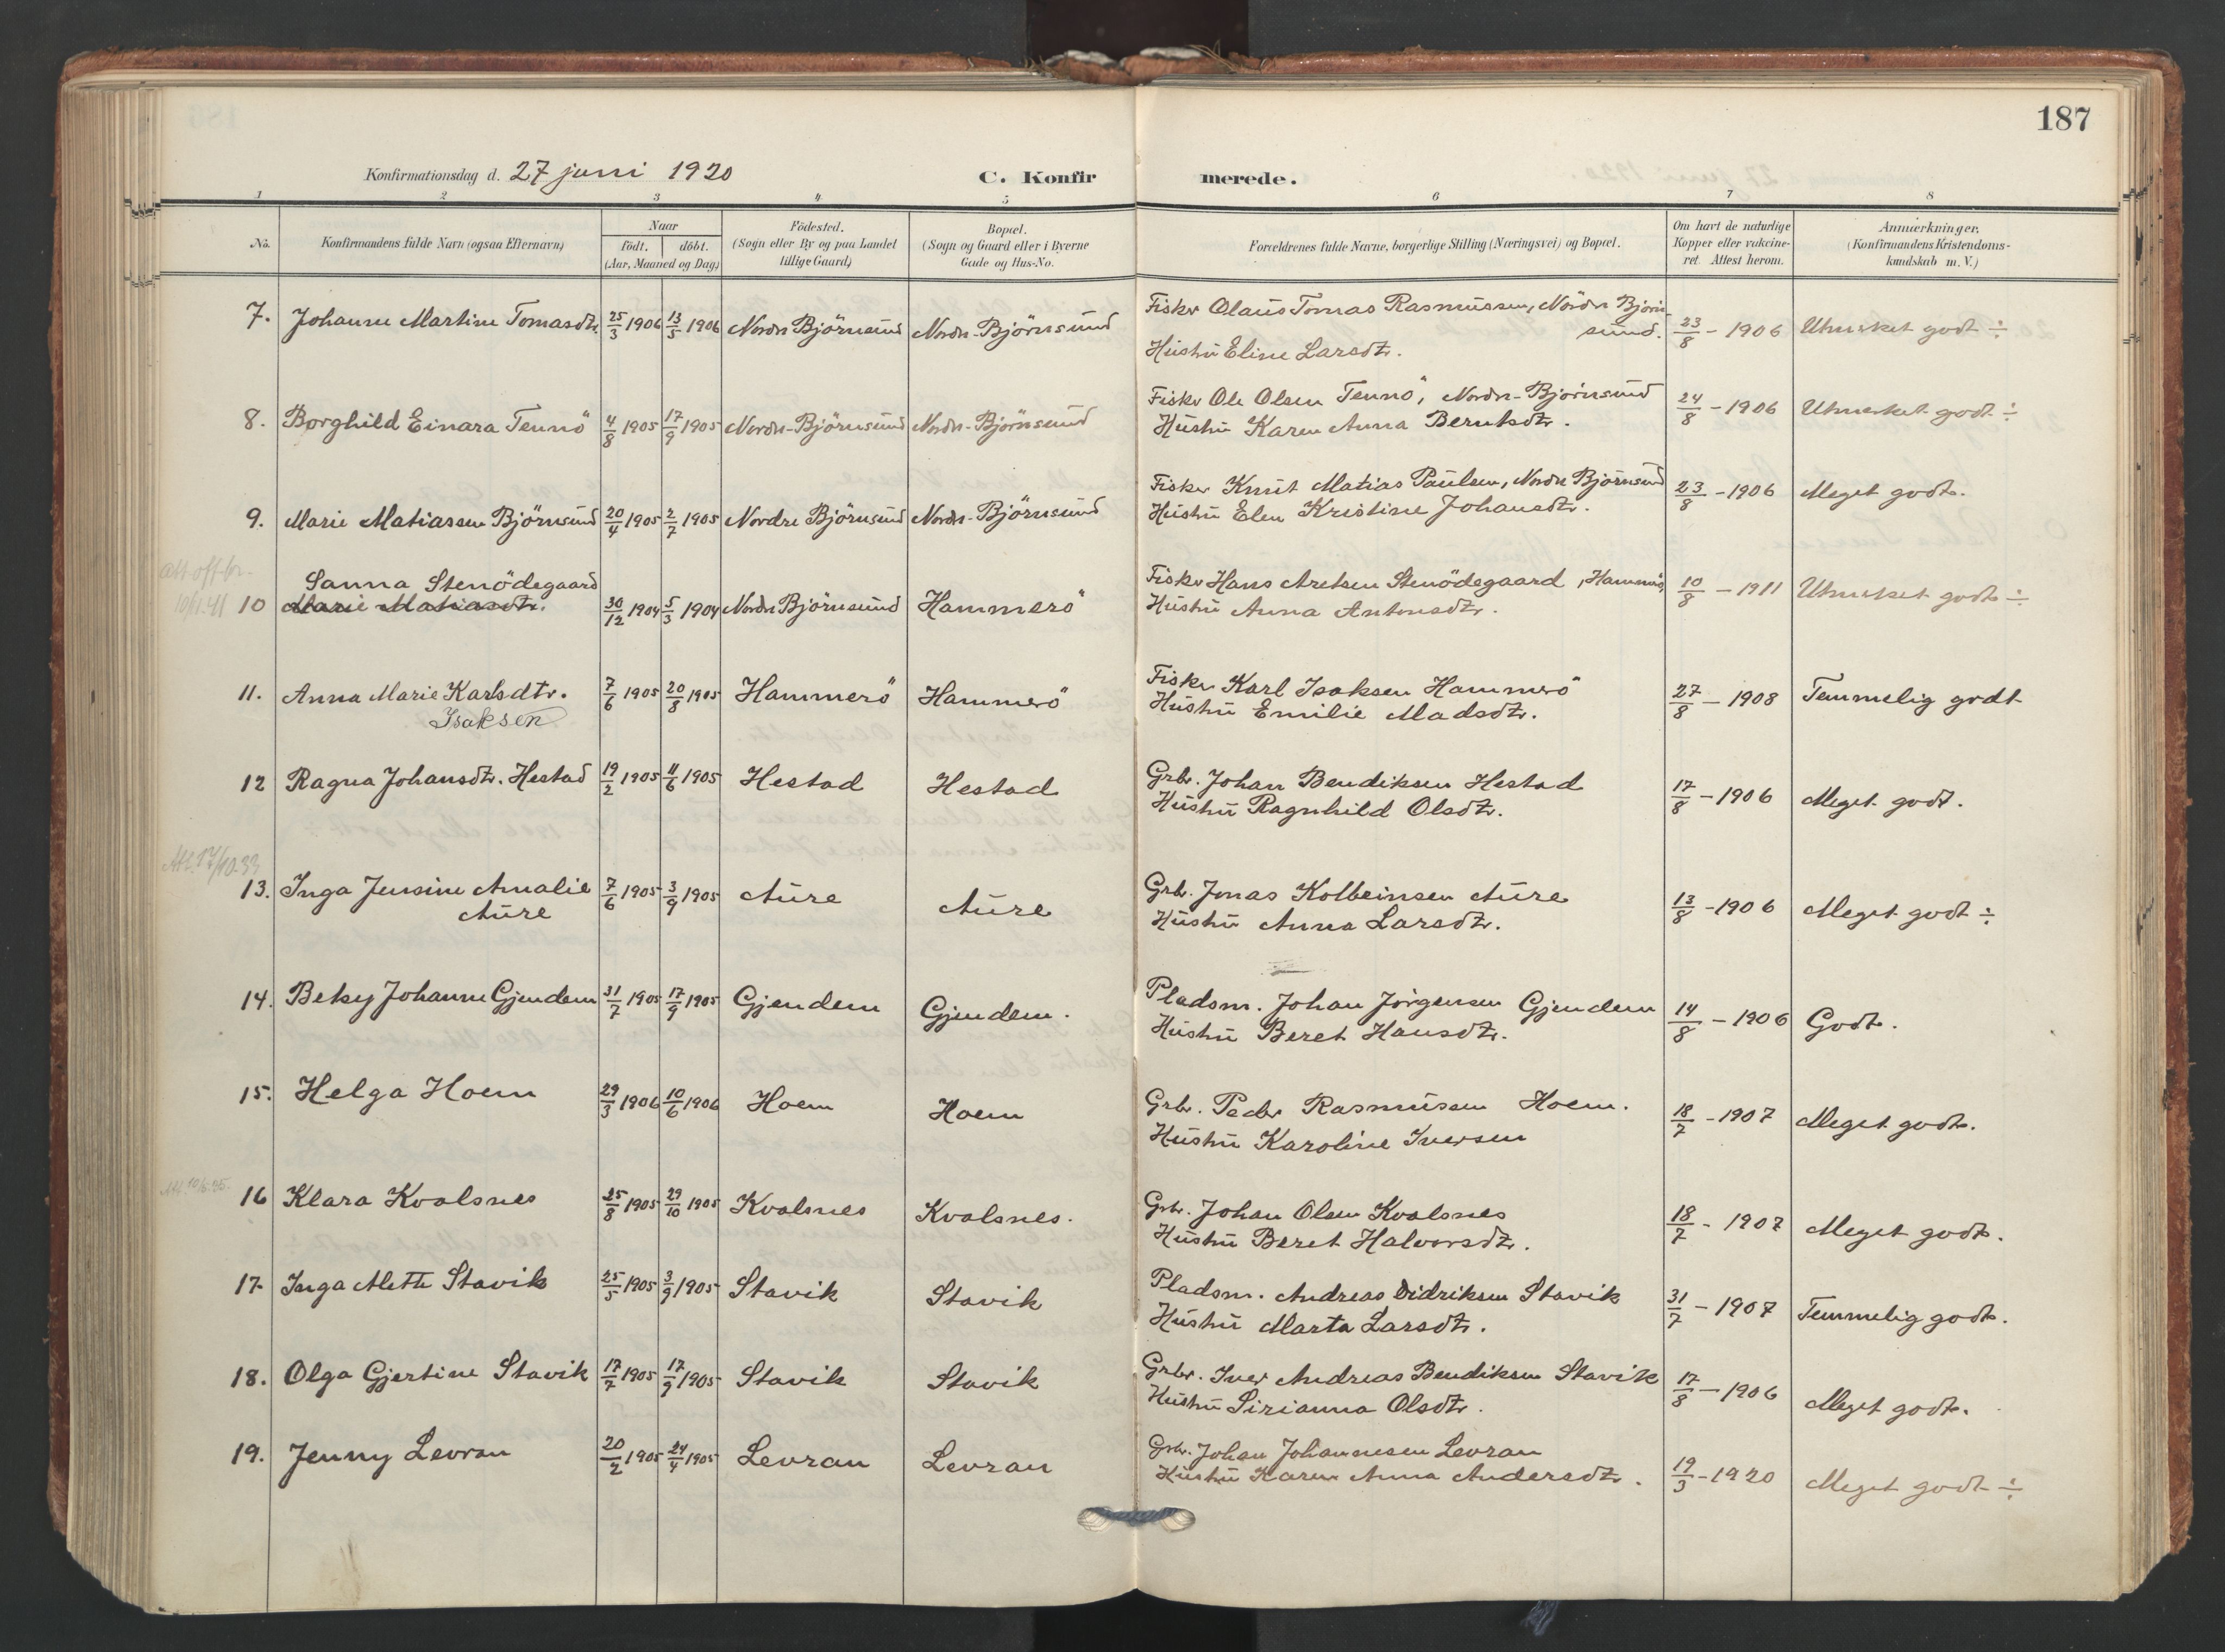 187
Konfirmationsdag d. 27 juni 1920 C. Konfirmerede.
1 2 3 4 5 6 7 8
No. Konfirmandens fulde Navn (ogsaa Efternavn) Naar födt. döbt. (Aar, Maaned og Dag) Födested. (Sogn eller By og paa Landet tillige Gaard) Bopæl. (Sogn og Gaard eller i Byerne Gade og Hus-No. Forældrenes fulde Navne, borgerlige Stilling (Næringsvei) og Bopæl. Om havt de naturlige Kopper eller vakcineret. Attest herom. Anmærkninger. (Konfirmandens Kristendomskundskab m. V.)
7. Johanne Martine Tomasdtr. 25/3 1906 13/5 1906 Nordre Björnsund Nordre-Björnsund Fisker Olaus Tomas Rasmussen, Nordre Björn-
sund. 23/8 - 1906 Utmerket godt ÷
Hustru Eline Larsdtr.
8. Borghild Einara Tennö 4/8 1905 17/9 1905 Nordre-Björnsund Nordre-Björnsund Fisker Ole Olsen Tennö, Nordre-Björnsund 24/8 - 1906 Utmerket godt ÷
Hustru Karen Anna Berntsdtr.
9. Marie Matiassen Björnsund 20/4 1905 2/7 1905 Nordre Björnsund Nordre-Björnsund Fisker Knut Matias Paulsen, Nordre Björnsund 23/8 - 1906 Meget godt.
Hustru Elen Kristine Johansdtr.
Att off br.
10/1.41
Sanna Stenödegaard
10 Marie Matiasdtr. 30/12 1904 5/3 1904 Nordre Björnsund Hammerö Fisker Hans Aretsen Stenödegaard, Hammerö, 10/8 - 1911 Utmerket godt ÷
Hustru Anna Antonsdtr.
11. Anna Marie Karlsdtr. 7/6 1905 20/8 1905 Hammerö Hammerö Fisker Karl Isaksen Hammerö 27/8 - 1908 Temmelig godt
Isaksen Hustru Emilie Madsdtr.
12 Ragna Johansdtr. Hestad 19/2 1905 11/6 1905 Hestad Hestad Grbr. Johan Bendiksen Hestad 17/8 - 1906 Meget godt.
Hustru Ragnhild Olsdtr.
Att. 17/10.33
13. Inga Jensine Amalie 7/6 1905 3/9 1905 Aure Aure Grbr. Jonas Kolbeinsen Aure 13/8 - 1906 Meget godt ÷
Aure Hustru Anna Larsdtr.
14. Beksy Johanne Gjendem 31/7 1905 17/9 1905 Gjendem Gjendem. Pladsm. Johan Jörgensen Gjendem 14/8 - 1906 Godt.
Hustru Beret Hansdtr.
15. Helga Hoem 29/3 1906 10/6 1906 Hoem Hoem Grbr. Peder Rasmussen Hoem. 18/7 - 1907 Meget godt.
Hustru Karoline Iversen
16 Klara Kvalsnes 25/8 1905 29/10 1905 Kvalsnes Kvalsnes. Grbr. Johan Olsen Kvalsnes 18/7 - 1907 Meget godt.
Hustru Beret Halvorsdtr.
17. Inga Mette Stavik 25/5 1905 3/9 1905 Stavik Stavik Pladsm. Andreas Didriksen Stavik 31/7 - 1907 Temmelig godt.
Hustru Marta Larsdtr.
18. Olga Gjertine Stavik 17/7 1905 17/9 1905 Stavik Stavik Grbr. Iver Andreas Bendiksen Stavik 17/8 - 1906 Meget godt.
Hustru Sirianna Olsdtr.
19. Jenny Levran 20/2 1905 24/4 1905 Levran Levran Grbr. Johan Johannesen Levran 19/3 - 1920 Meget godt ÷
Hustru Karen Anna Andersdtr.